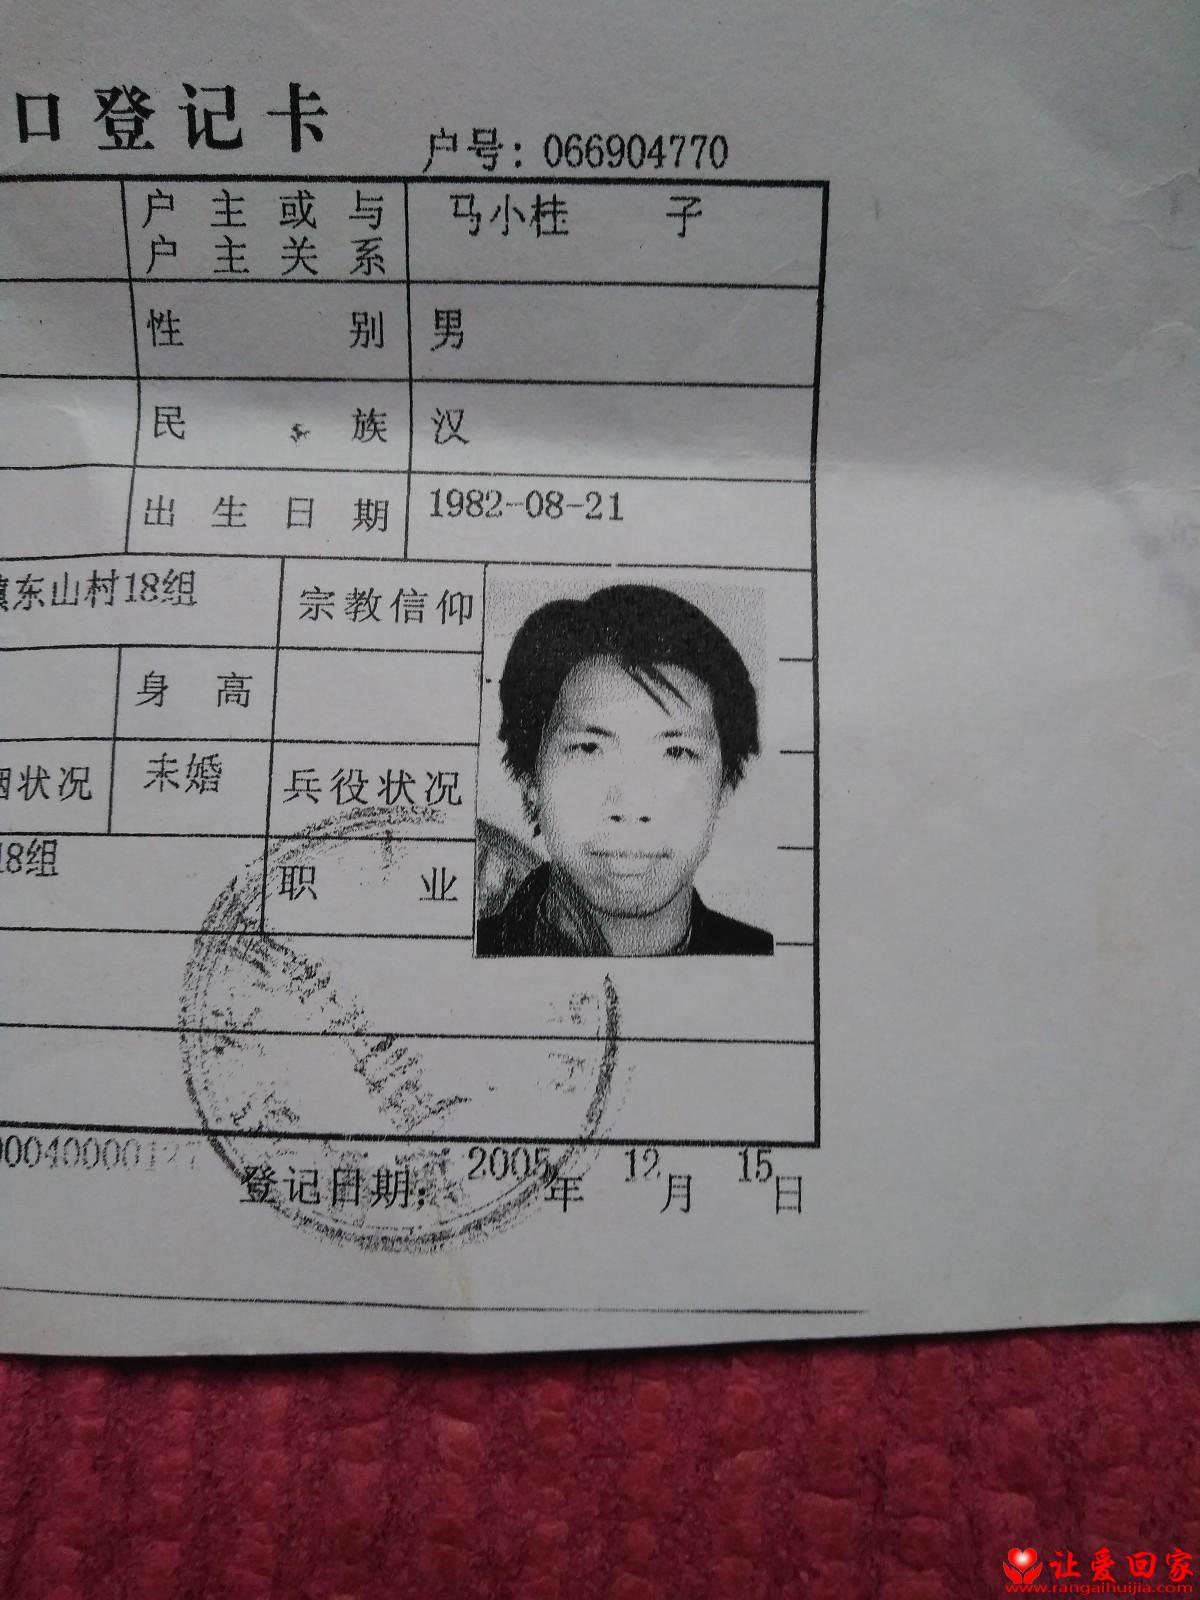 口登记卡
户号：066904770
户主或与
户主关系
马小桂 子
性别 男
民族 汉
出生日期 1982-08-21
镇东山村18组 宗教信仰
身高
姻状况 未婚 兵役状况
18组 职业
00040000127
登记日期：2005年12月15日
让爱回家
www.rangaihuijia.com